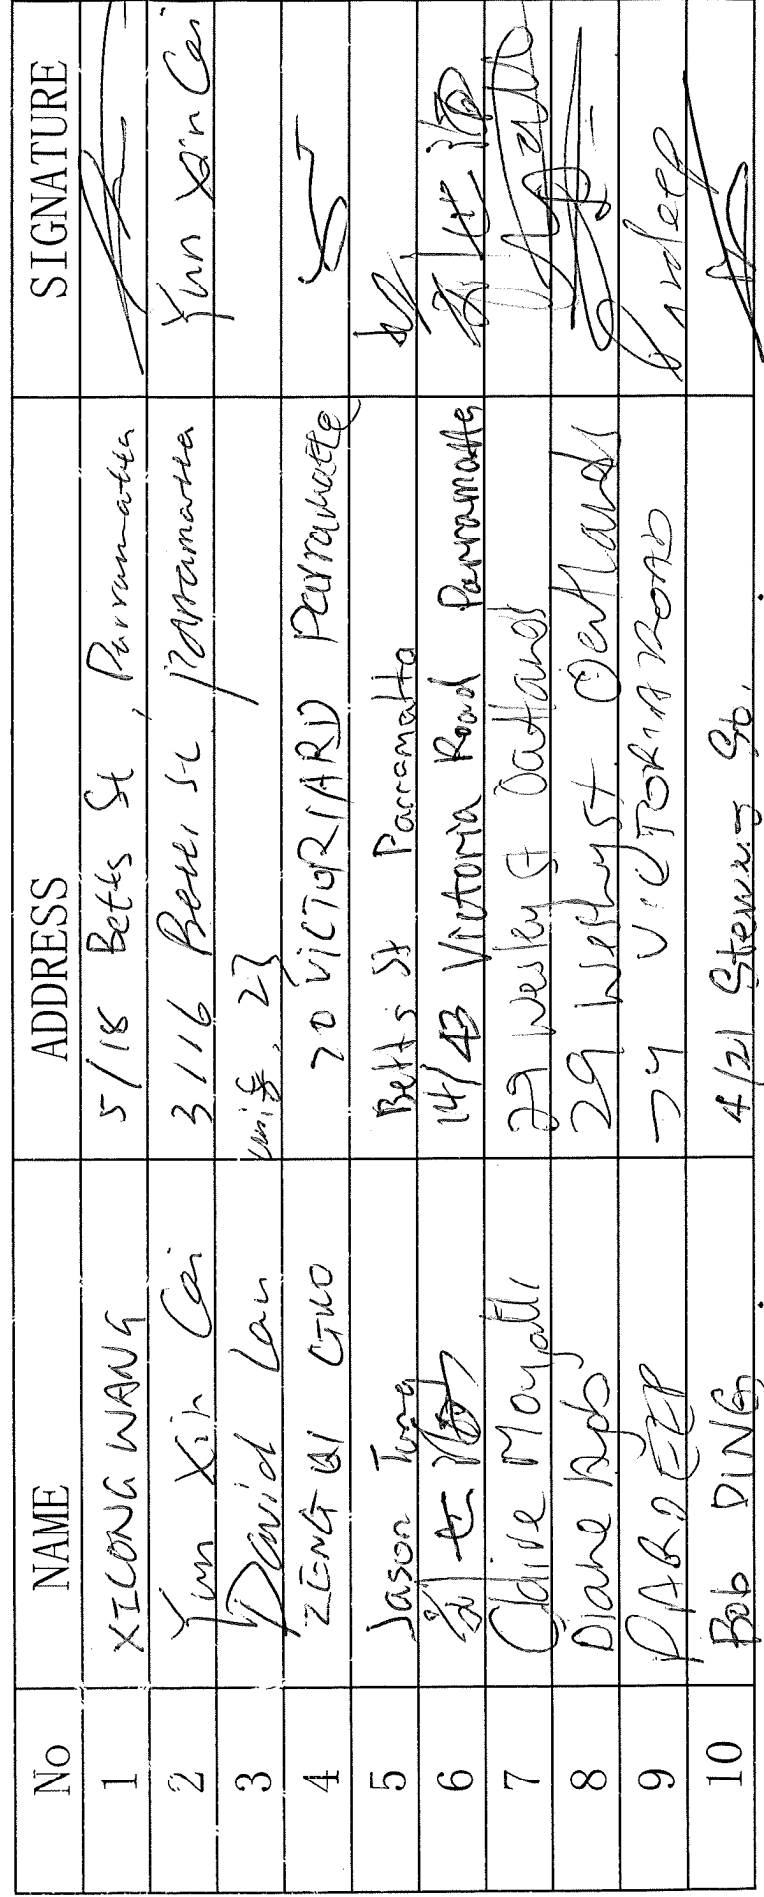 No NAME ADDRESS SIGNATURE
1 XICONG WANG 5/18 Betts St, Parramatta
2 Yun Xin Cai 3/16 Betts St Parramatta Yun Xin Cai
3 David Lau unit 23
4 ZENG QI GUO 70 VICTORIA RD Parramatta
5 Jason Tung Betts St Parramatta
6 14/43 Victoria Road Parramatta
7 Claire Moyatti 29 Wesley St Oatlands
8 Diane 29 Wesley St Oatlands
9 PARDEEP 74 VICTORIA ROAD Pardeep
10 Bob DING 4/21 St.